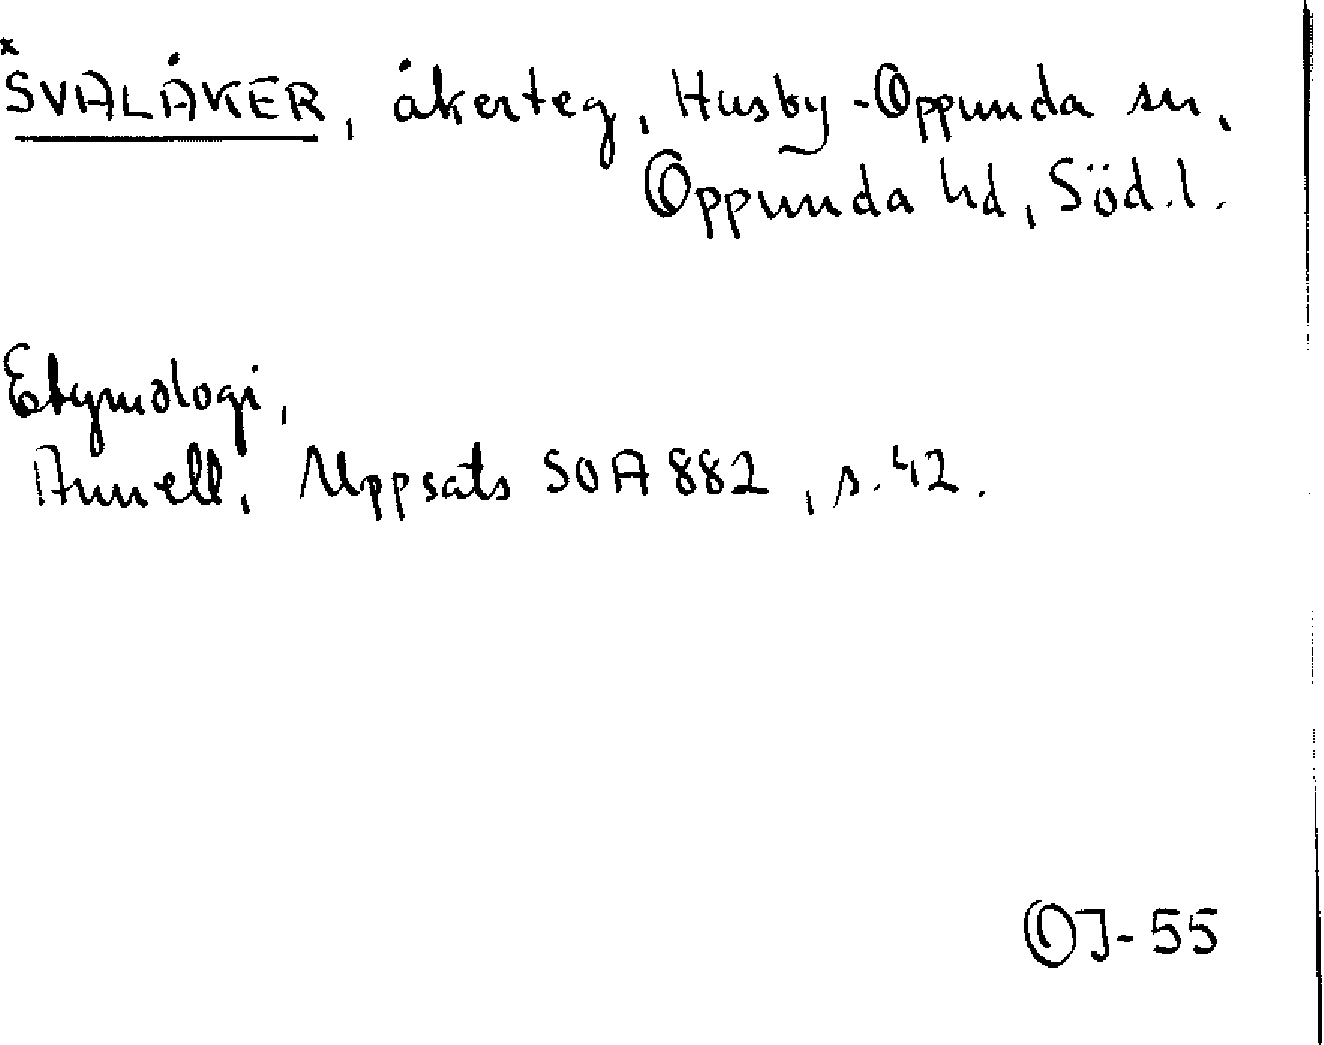 x SVALÅKER, åkerteg, Husby-Oppunda sn,
Oppunda hd, Söd.l.
Etymologi,
Annell, Uppsats SOA 882, s. 42.
OJ-55